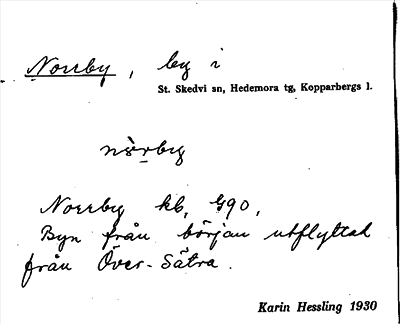 Norrby, by i
St. Skedvi sn, Hedemora tg, Kopparbergs l.
Norrby kb, 490,
Byn från början utflyttad
från Över-Sätra.
Karin Hessling 1930